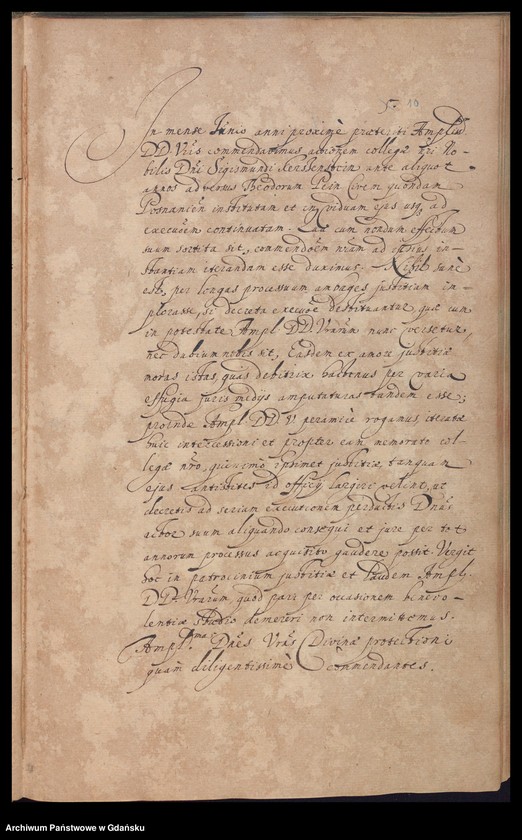 5. 10
In mense Junio anni proximè praeteriti Ampliss.
DD. Vris commendavimus actionem collegae nri No-
bilis Dni Sigismundi Kerschenstein ante aliquot
annos adversus Theodorum Pein Civem quondam
Posnanien institutam et in viduam ejus usq ad
execuoem continuatam. Ea cum nondum effectum
suum sortita sit, commendoem nram ad ipsius in-
stantiam iterandam esse duximus. Nihil sanè
est, per longas processuum ambages justitiam im-
plorasse, si decreta execuoe destituantur, quae cum
in potestate Ampl. DD. Vrarum nunc versetur,
nec dubium nobis sit, Easdem ex amore justitiae
moras istas, quas debitrix hactenus per varia
effugia juris medijs amputaturas tandem esse;
proinde Ampl. DD. V. peramicè rogamus, iteratae
huic intercessioni et propter eam memorato col-
legae nro, quin imò ipsimet justitiae tanquam
ejus antistites id officij largiri velint, ut
decretis ad seriam executionem perductis Dnus
actor suum aliquando consequi et jure per tot
annorum processus acquisito gaudere possit. Vergit
hoc in patrocinium justitiae et laudem Ampl.
DD. Vrarum, quod pari per occasionem benevo-
lentiae studio demereri non intermittemus.
Ampl.mas Dnes Vras Divinae protectioni
quam diligentissimè commendantes.
Archiwum Państwowe w Gdańsku